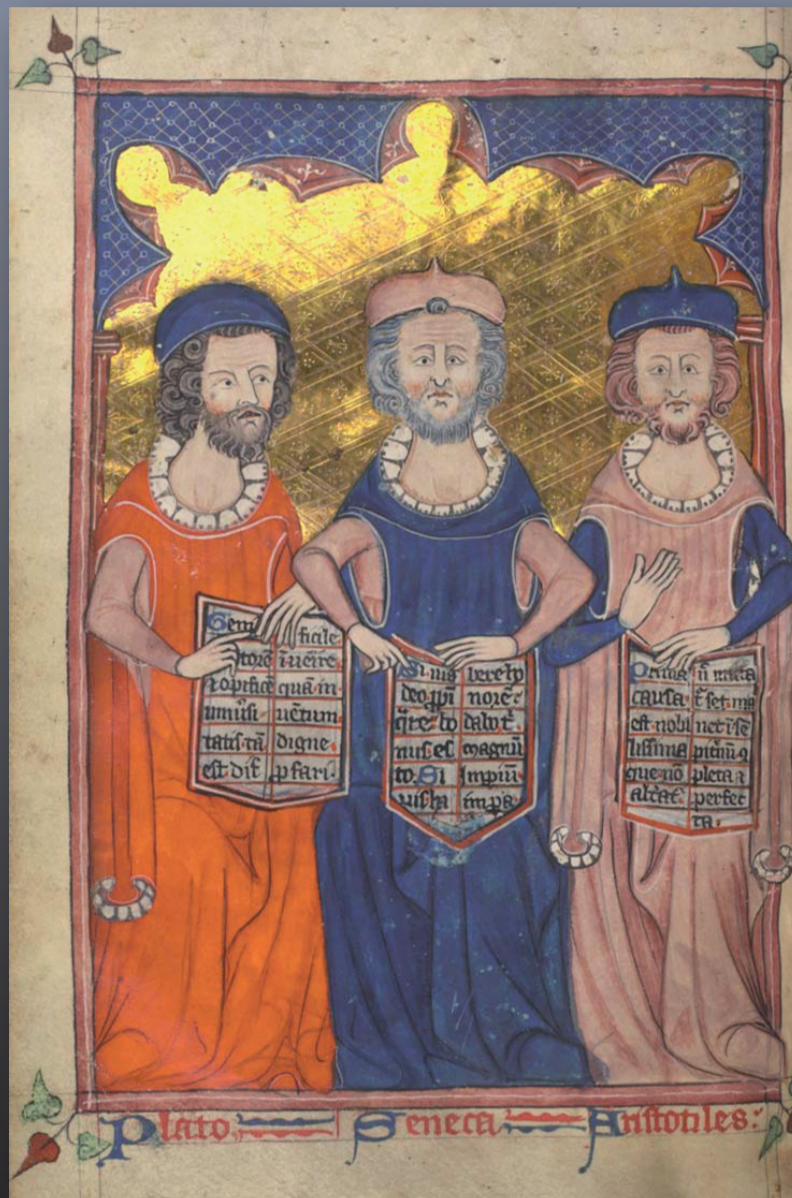 Geni
torē
⁊ opificē
uniūsi
tatis tā
est dif
ficile
īuēire
quā in
uētum
digne
pfari.
Si uis
deo
q̄re bo
nus es
to. Si
uis ha
bere ho
norē:
magnū
Impiū
impa
Prima
causa
est nobi
lissima
que nō
set ma
net ī se
pleta ⁊
perfec
ta.
Plato Seneca Aristotiles: